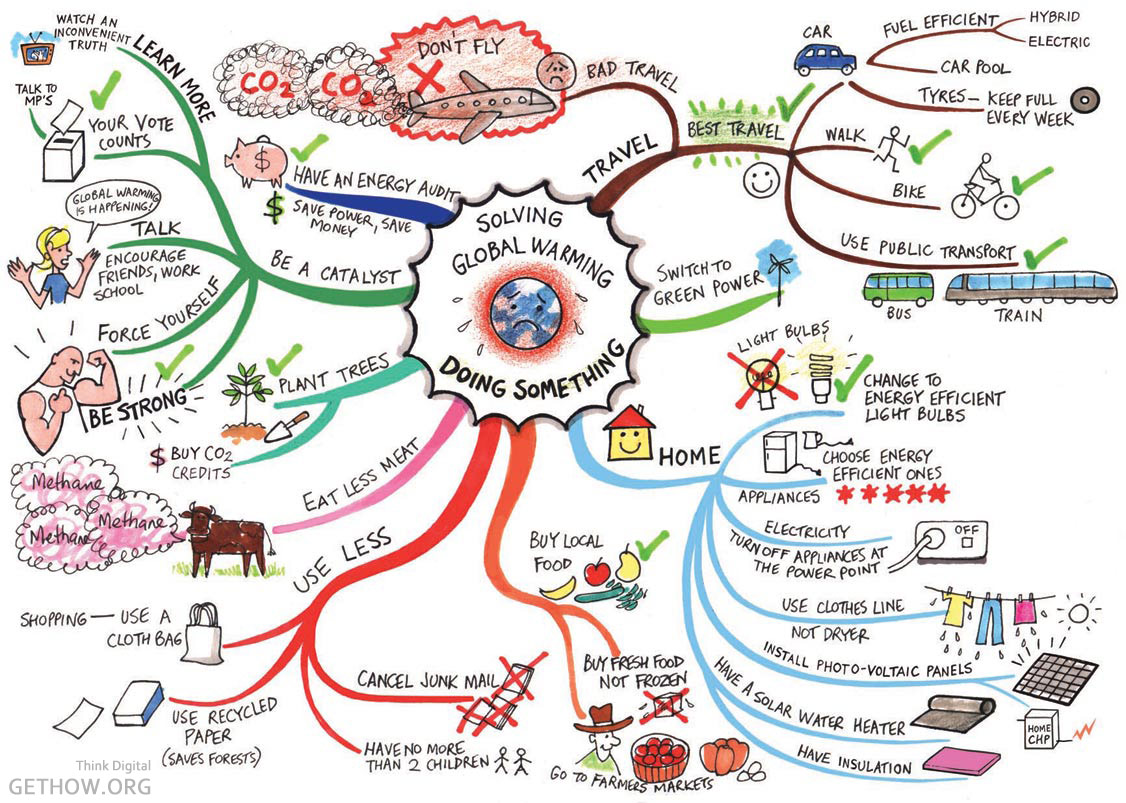 SOLVING
GLOBAL WARMING
DOING SOMETHING
TRAVEL
BAD TRAVEL
DON'T FLY
CO2
CO2
BEST TRAVEL
CAR
FUEL EFFICIENT
HYBRID
ELECTRIC
CAR POOL
TYRES — KEEP FULL
EVERY WEEK
WALK
BIKE
USE PUBLIC TRANSPORT
BUS
TRAIN
SWITCH TO
GREEN POWER
HOME
LIGHT BULBS
CHANGE TO
ENERGY EFFICIENT
LIGHT BULBS
CHOOSE ENERGY
EFFICIENT ONES
APPLIANCES
ELECTRICITY
TURN OFF APPLIANCES AT
THE POWER POINT
OFF
USE CLOTHES LINE
NOT DRYER
INSTALL PHOTO-VOLTAIC PANELS
HOME
CHP
HAVE A SOLAR WATER HEATER
HAVE INSULATION
BUY LOCAL
FOOD
BUY FRESH FOOD
NOT FROZEN
GO TO FARMERS MARKETS
USE LESS
SHOPPING — USE A
CLOTH BAG
USE RECYCLED
PAPER
(SAVES FORESTS)
CANCEL JUNK MAIL
HAVE NO MORE
THAN 2 CHILDREN
EAT LESS MEAT
Methane
Methane
Methane
PLANT TREES
$ BUY CO2
CREDITS
BE A CATALYST
LEARN MORE
WATCH AN
INCONVENIENT
TRUTH
TALK TO
MP'S
YOUR VOTE
COUNTS
GLOBAL WARMING
IS HAPPENING!
TALK
ENCOURAGE
FRIENDS, WORK
SCHOOL
FORCE YOURSELF
BE STRONG
$
HAVE AN ENERGY AUDIT
$ SAVE POWER, SAVE
MONEY
Think Digital
GETHOW.ORG